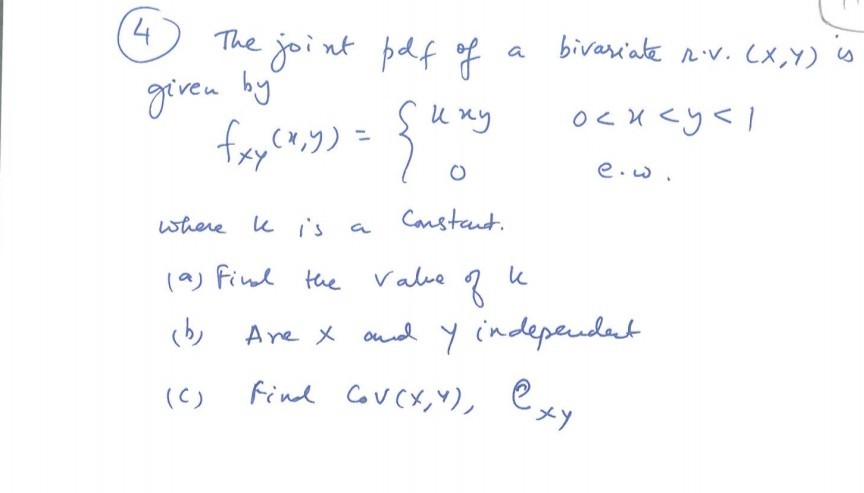 ④ The joint pdf of a bivariate r.v. (X,Y) is
given by
f_XY(x,y) = { k xy 0 < x < y < 1
0 e.w.
where k is a constant.
(a) Find the value of k
(b) Are X and Y independent
(c) Find Cov(X,Y), ρ_XY